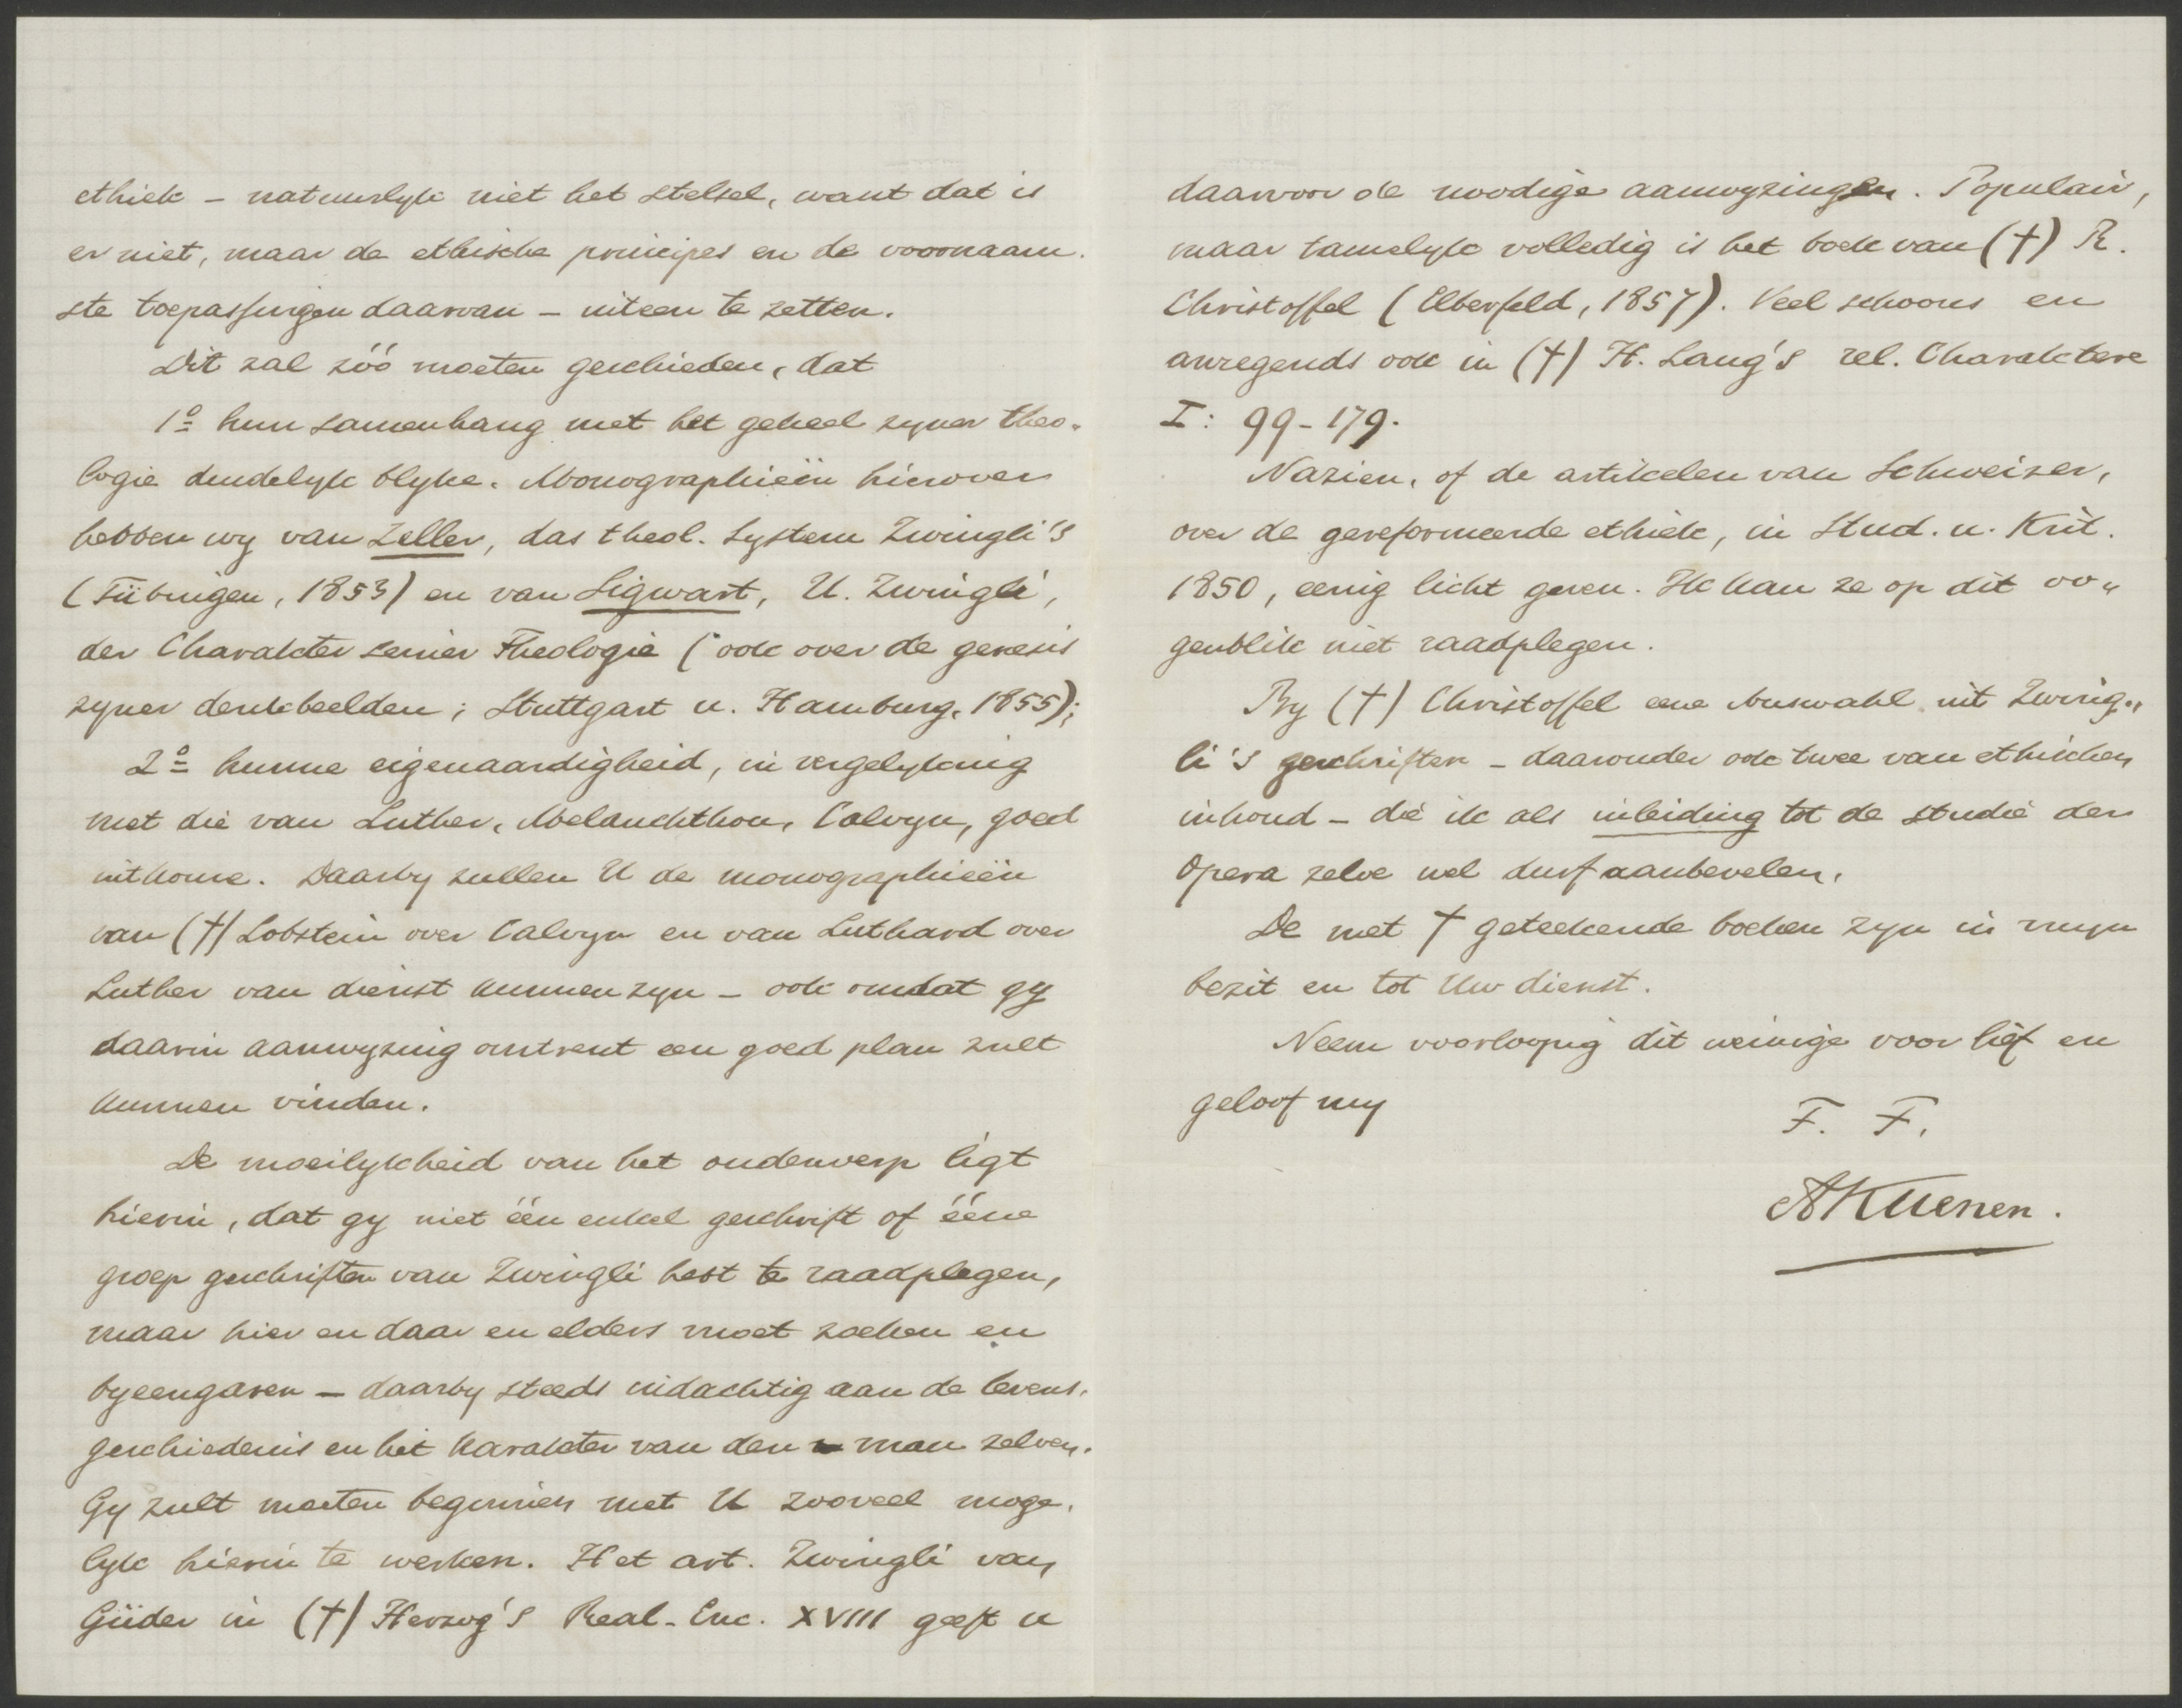 ethiek – natuurlyk niet het stelsel, want dat is
er niet, maar de ethische principes en de voornaam-
ste toepassingen daarvan – uiteen te zetten.
Dit zal zóó moeten geschieden, dat
1º hun samenhang met het geheel zyner theo-
logie duidelyk blyke. Monographieën hierover
hebben wy van Zeller, das theol. System Zwingli's
(Tübingen, 1853) en van Sigwart, U. Zwingli,
der Charakter seiner Theologie (ook over de genesis
zyner denkbeelden; Stuttgart u. Hamburg, 1855);
2º hunne eigenaardigheid, in vergelyking
met die van Luther, Melanchthon, Calvyn, goed
uitkome. Daarby zullen U de monographieën
van (†) Lobstein over Calvyn en van Luthard over
Luther van dienst kunnen zyn – ook omdat gy
daarin aanwyzing omtrent een goed plan zult
kunnen vinden.
De moeilykheid van het onderwerp ligt
hierin, dat gy niet één enkel geschrift of ééne
groep geschriften van Zwingli hebt te raadplegen,
maar hier en daar en elders moet zoeken en
byeengaren – daarby steeds indachtig aan de levens-
geschiedenis en het karakter van den man zelven.
Gy zult moeten beginnen met U zooveel moge-
lyk hierin te werken. Het art. Zwingli van
Güder in (†) Herzog's Real-Enc. XVIII geeft u
daarvoor de noodige aanwyzingen. Populair,
maar tamelyk volledig is het boek van (†) R.
Christoffel (Elberfeld, 1857). Veel schoons en
anregends ook in (†) H. Lang's rel. Charaktere
I: 99-179.
Nazien, of de artikelen van Schweizer,
over de gereformeerde ethiek, in Stud. u. Krit.
1850, eenig licht geven. Ik kan ze op dit oo-
genblik niet raadplegen.
By (†) Christoffel eene Auswahl uit Zwing-
li's geschriften – daaronder ook twee van ethischen
inhoud – die ik als inleiding tot de studie der
Opera zelve wel durf aanbevelen.
De met † geteekende boeken zyn in myn
bezit en tot Uw dienst.
Neem voorloopig dit weinige voor lief en
geloof my
F. F.
AKuenen.